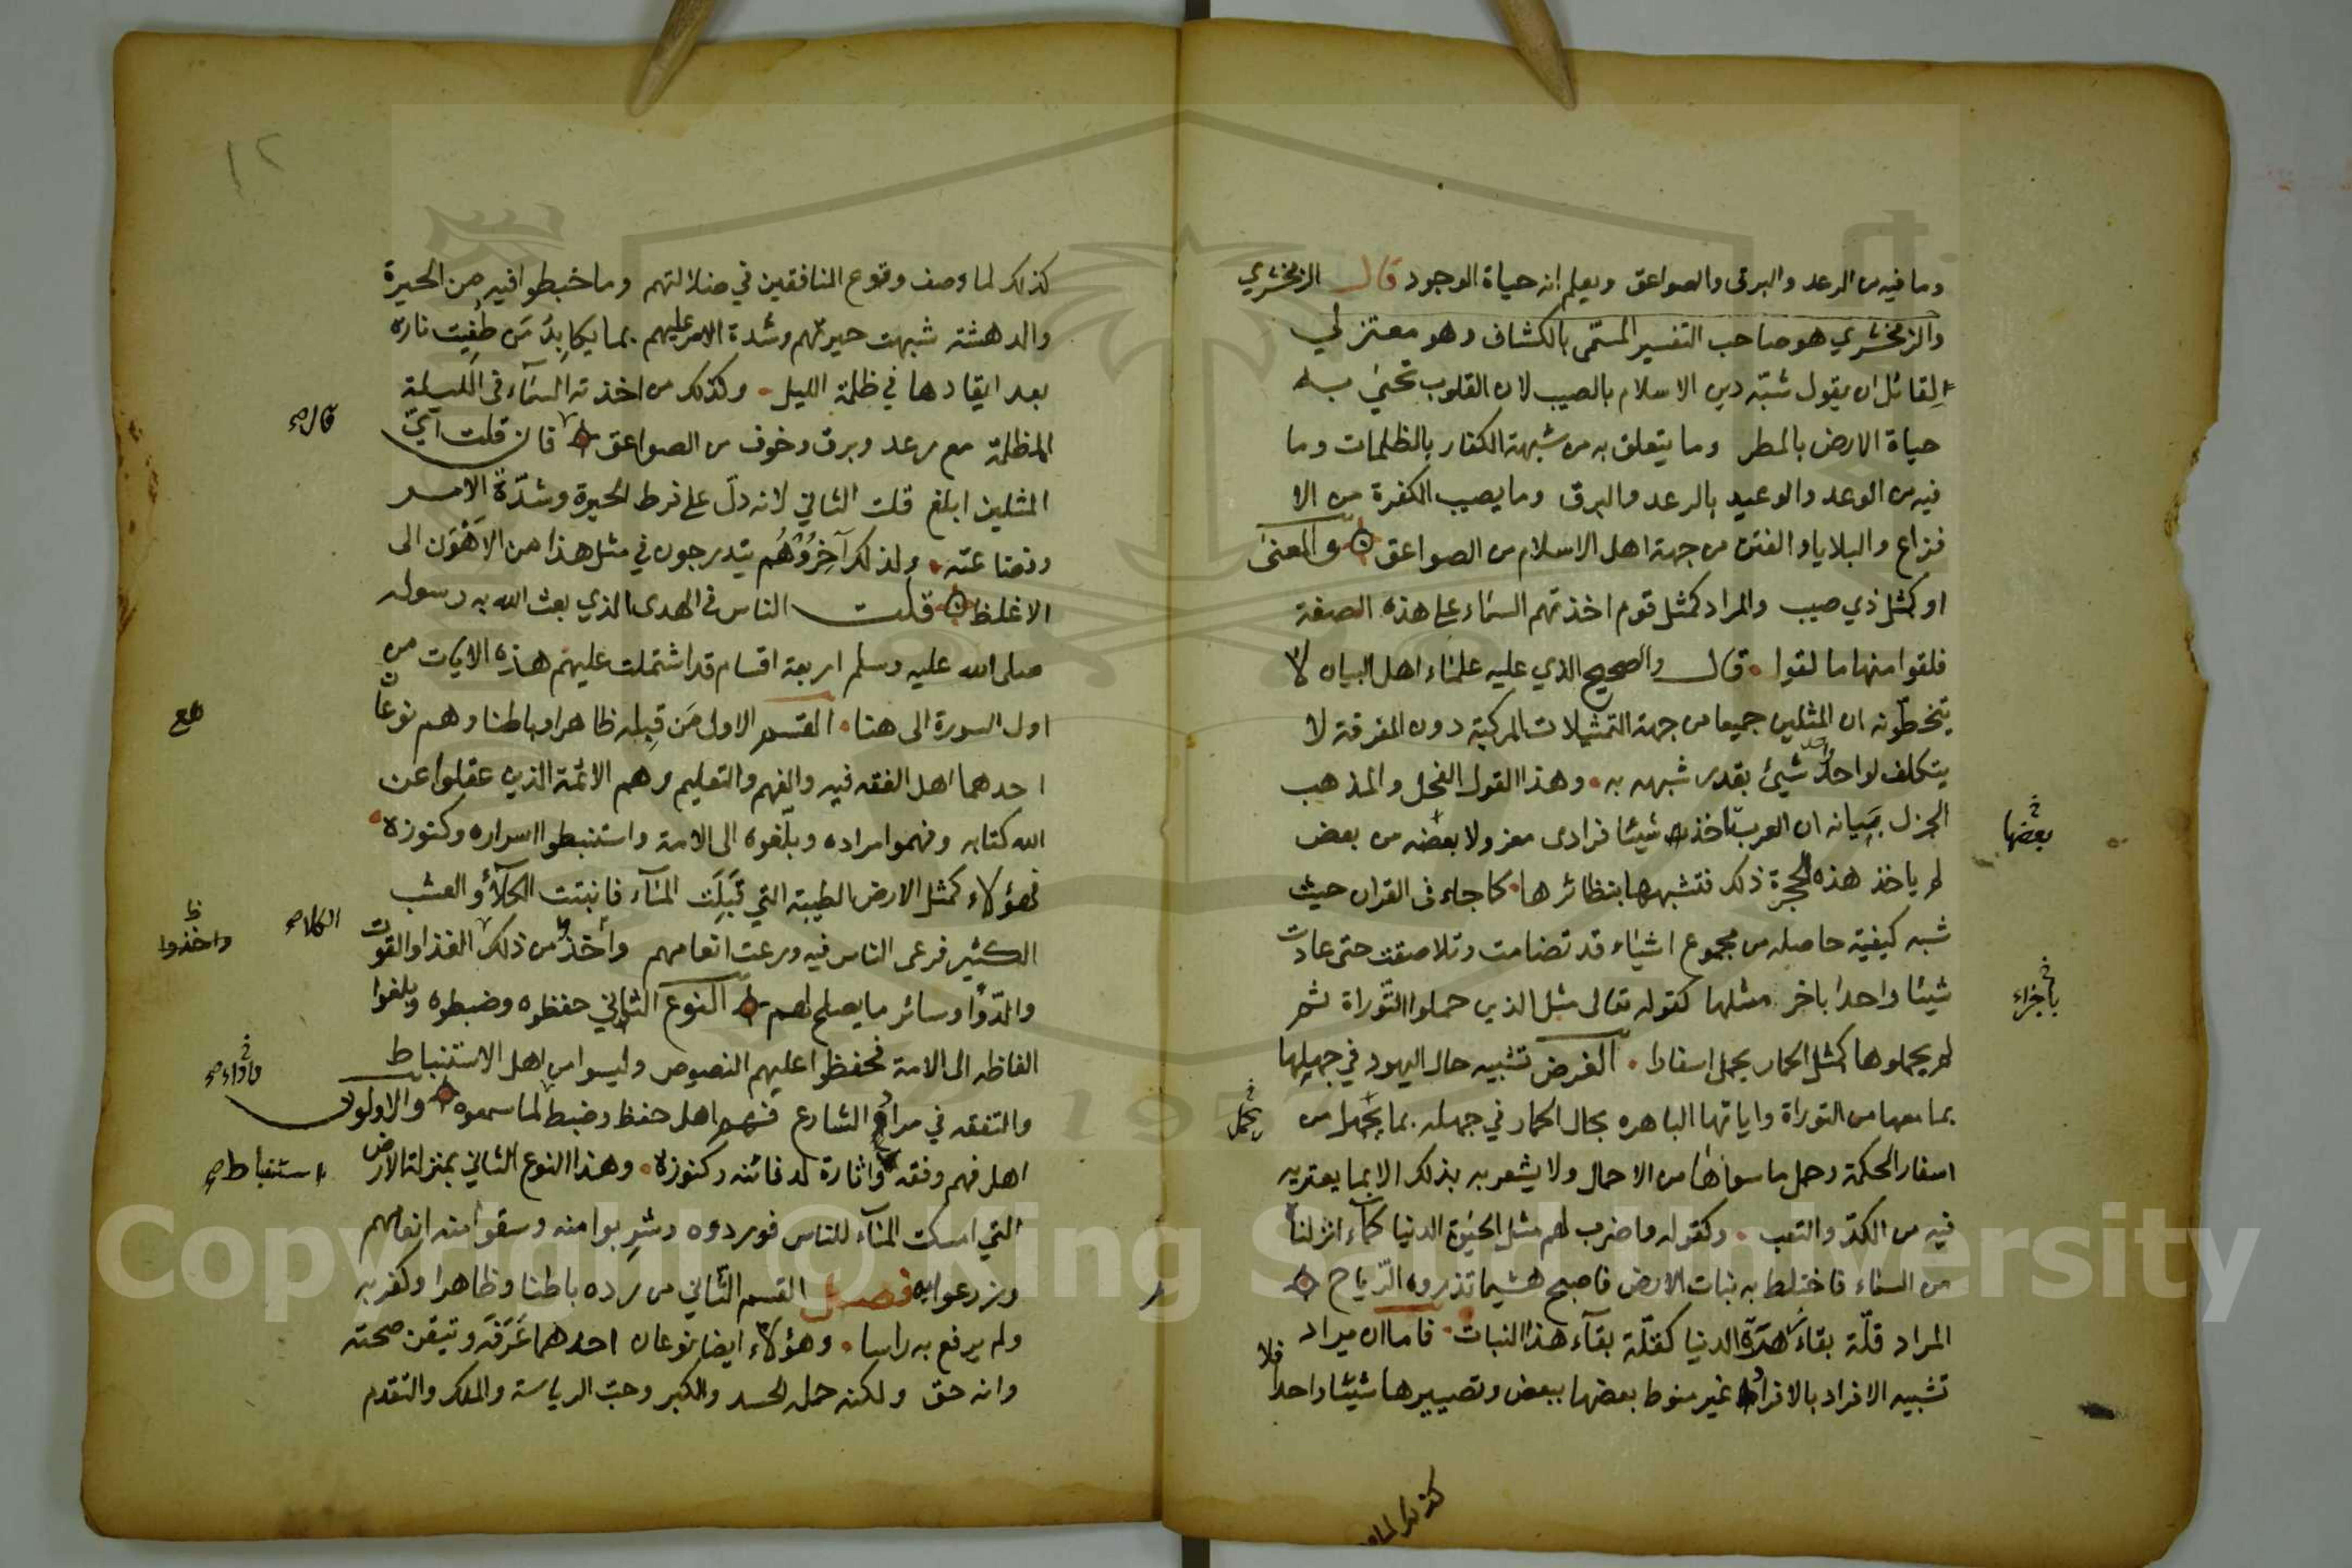 وما فيه من الرعد والبرق والصواعق ويعلم انه حياة الوجود قال الزمخشري
والزمخشري هو صاحب التفسير المسمّى بالكشاف وهو معتزلي
لقائل ان يقول شبّه دين الاسلام بالصيب لان القلوب تحيى به
حياة الارض بالمطر وما يتعلق به من شبهة الكفار بالظلمات وما
فيه من الوعد والوعيد بالرعد والبرق وما يصيب الكفرة من الا
فزاع والبلايا والفتن من جهة اهل الاسلام من الصواعق والمعنى
او كمثل ذي صيب والمراد كمثل قوم اخذتهم السماء على هذه الصفة
فلقوا منها ما لقوا قال والصحيح الذي عليه علماء اهل البيان لا
يتخطّونه ان المثلين جميعا من جهة التمثيلات المركبة دون المفرقة لا
يتكلف لواحد شيئ بقدر شبهه به وهذا القول الفحل والمذهب
الجزل بيانه ان العرب تاخذ شيئا فرادى معزولا بعضه من بعض
بعضها
لم ياخذ هذه الحجرة ذلك فتشبهها بنظائرها كما جاء فى القران حيث
شبه كيفية حاصله من مجموع اشياء قد تضامت وتلاصقت حتى عادت
شيئا واحدا باخر مثلها كقوله تعالى مثل الذين حملوا التوراة ثم
باجزاء
لم يحملوها كمثل الحمار يحمل اسفارا الغرض تشبيه حال اليهود في جهلها
بما معها من التوراة واياتها الباهره بحال الحمار في جهله بما يجهل من
يحمل
اسفار الحكمة وحمل ما سواها من الاحمال ولا يشعر به بذلك الا بما يعتريه
فيه من الكدّ والتعب وكقوله واضرب لهم مثل الحيوة الدنيا كماء انزلنا
من السماء فاختلط به نبات الارض فاصبح هشيما تذروه الرّياح
المراد قلّة بقاء هذه الدنيا كقلّة بقآء هذا النبات فاما ان يراد
تشبيه الافراد بالافراد غير منوط بعضها ببعض وتصييرها شيئا واحدا فلا
كذلك لما
١٢
كذلك لما وصف وقوع المنافقين في ضلالتهم وما خبطوا فيه من الحيرة
والدهشة شبهت حيرتهم وشدة الامر عليهم بما يكابد من طفيت ناره
بعد ايقادها في ظلمة الليل وكذلك من اخذته السمآء فى الليلة
المظلمة مع رعد وبرق وخوف من الصواعق فان قلت ايّ
قال
المثلين ابلغ قلت الثاني لانه دلّ على فرط الحيرة وشدّة الامر
وفظاعته ولذلك آخروهم يتدرجون في مثل هذا من الاهون الى
الاغلظ قلت الناس فى الهدى الذي بعث الله به رسوله
صلى الله عليه وسلم اربعة اقسام قد اشتملت عليهم هذه الايات من
اول السورة الى هنا القسم الاول من قبله ظاهرا وباطنا وهم نوعان
احدهما اهل الفقه فيه والفهم والتعليم وهم الائمة الذين عقلوا عن
الله كتابه وفهموا مراده وبلّغوه الى الامة واستنبطوا اسراره وكنوزه
فهؤلاء كمثل الارض الطيبة التي قبلت المآء فانبتت الكلأ والعشب
الكلاء
الكثير فرعى الناس فيه ورعت انعامهم واخذ من ذلك الغذا والقوت
واخذوا
والدّوا وسائر ما يصلح لهم النوع الثاني حفظوه وضبطوه وبلغوا
الفاظه الى الامة فحفظوا عليهم النصوص وليسوا من اهل الاستنباط
والتفقه في مراد الشارع فهم اهل حفظ وضبط لما سمعوه والاولون
واداء
اهل فهم وفقه واثارة لدفائنه وكنوزه وهذا النوع الثاني بمنزلة الارض
استنباط
التي امسكت المآء للناس فوردوه وشربوا منه وسقوا منه انعامهم
وزرعوا به فصل القسم الثاني من رده باطنا وظاهرا وكفر به
ولم يرفع به راسا وهؤلاء ايضا نوعان احدهما عرفه وتيقن صحته
وانه حق ولكنه حمله الحسد والكبر وحبّ الرياسة والملك والتقدم
Copyright © King Saud University
1957